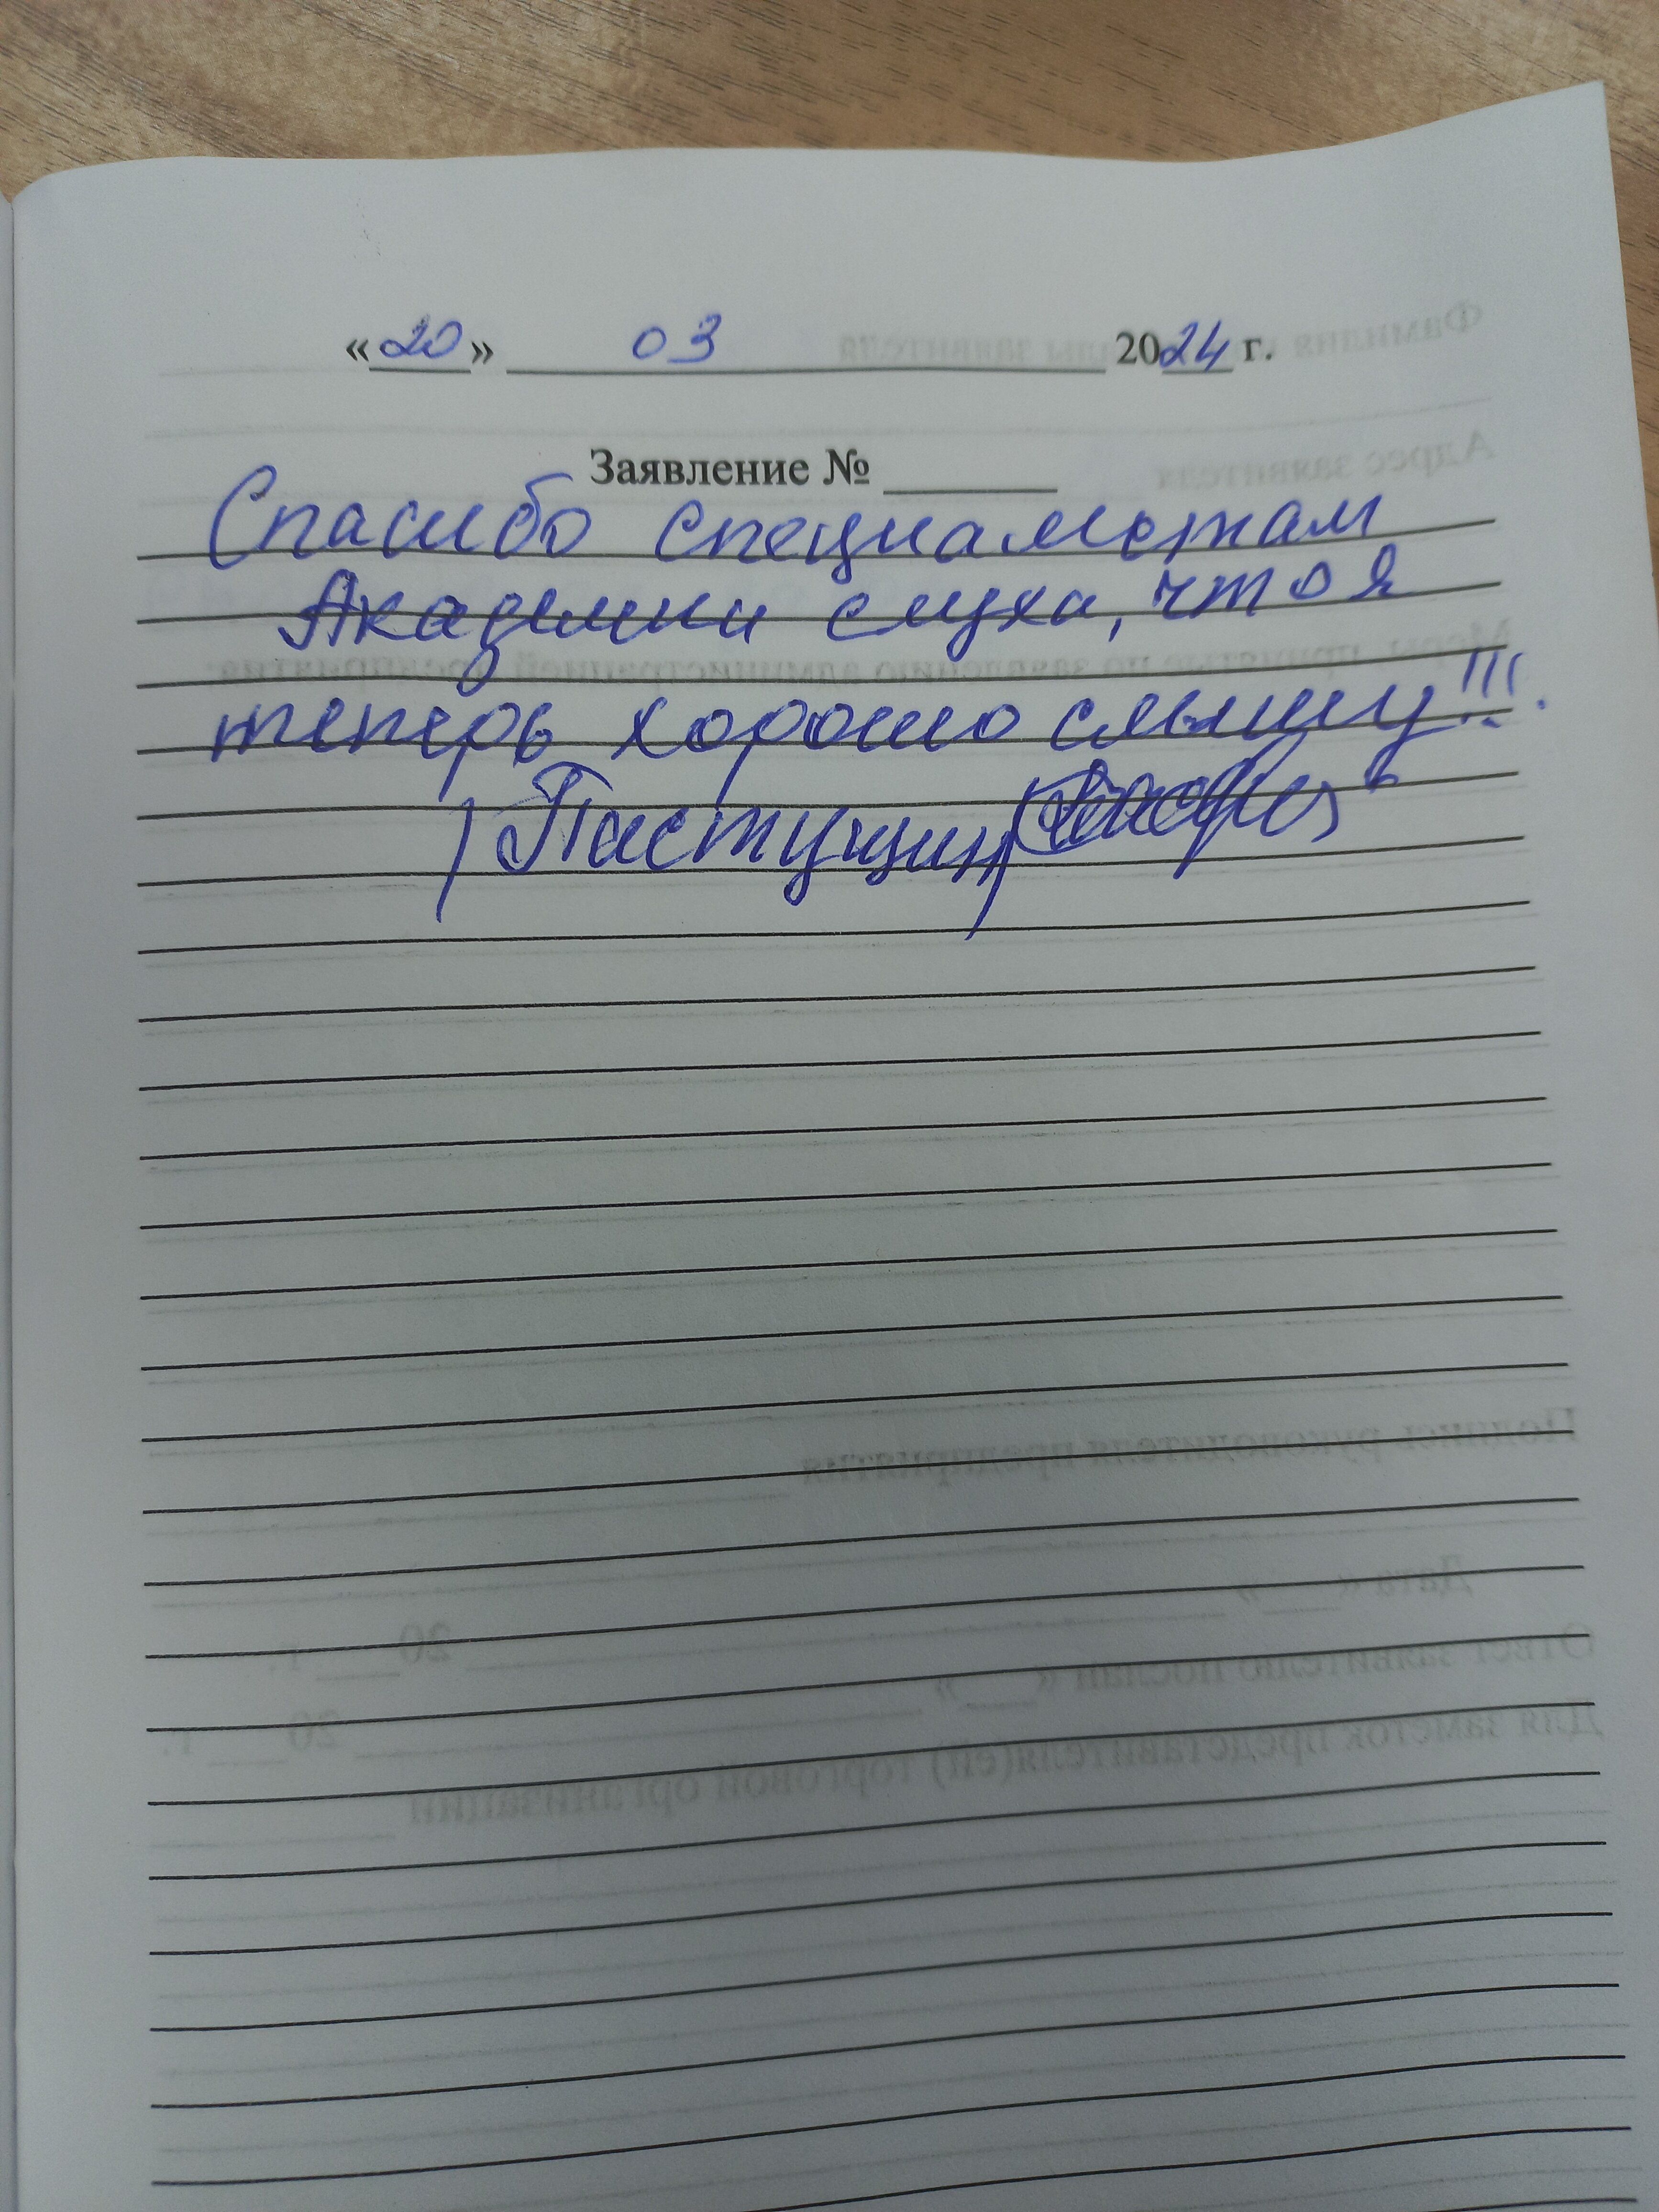 «20» 03 2024 г.
Заявление № ______
Спасибо специалистам
Академии слуха, что я
теперь хорошо слышу!!!